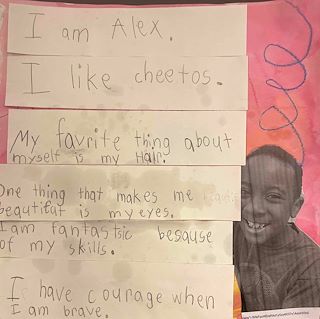 I am Alex.
I like cheetos.
My favrite thing about
myself is my Hair.
One thing that makes me
beautifat is my eyes.
I am fantastsic besause
of my skills.
I have courage when
I am brave.